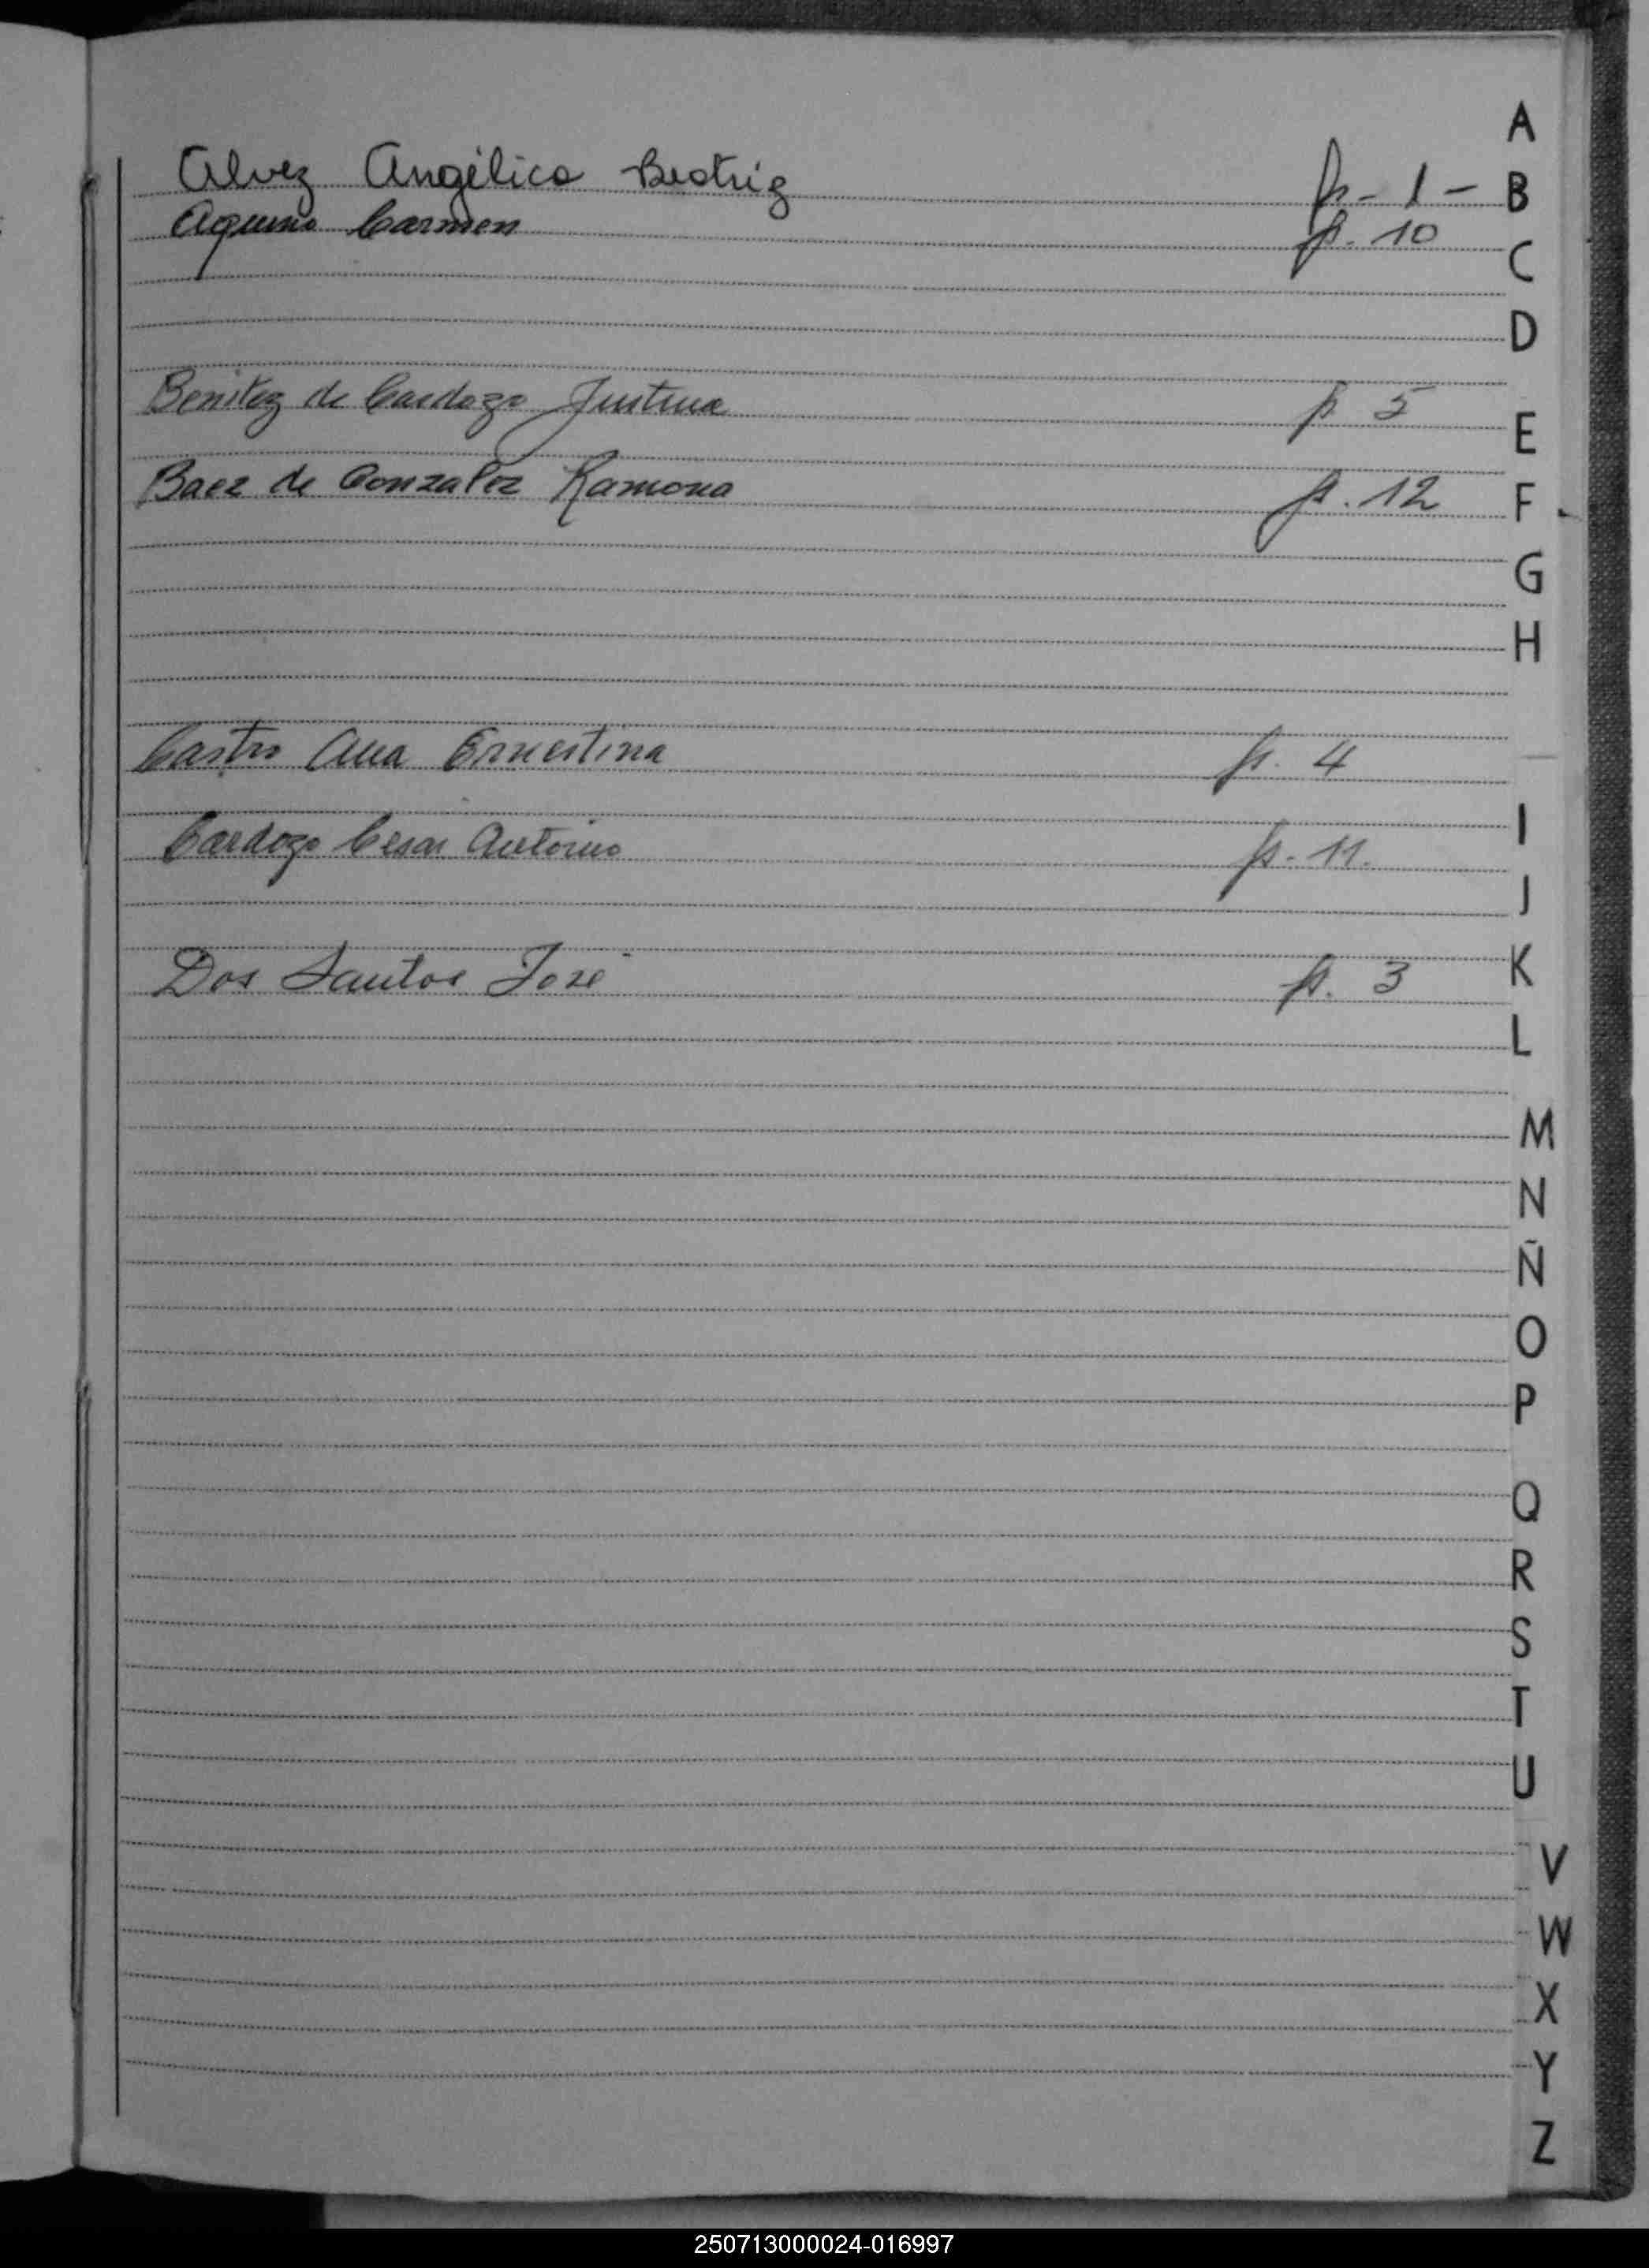 A
Alvez Angélica Beatriz p. 1 - B
Aquino Carmen p. 10
C
D
Benitez de Cardozo Justina p 5
E
Baez de Gonzalez Ramona p. 12 F
G
H
Castro Ana Ernestina p. 4
I
Cardozo Cesar Antonio p. 11.
J
K
Dos Santos José p. 3
L
M
N
Ñ
O
P
Q
R
S
T
U
V
W
X
Y
Z
250713000024-016997